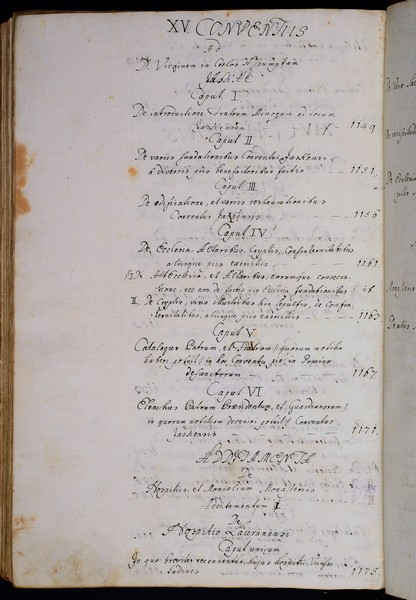 XV CONVENTUS
Ad
D. Virginem in Coelos Assumptam
JASKAE
Caput I
De introductione Fratrum Minorum ad Locum
Jaskensem - - - 1149
Caput II
De variis fundationibus Conventui Jaskensi
a diversis piis benefactoribus factis - - 1151
Caput III
De aedificatione, et variis restaurationibus
Conventus Jaskensis - - - 1156
Caput IV
De Ecclesia Altaribus, Cryptis, Confraternitatibus
aliisque piis exercitiis - - 1161
§ I De Ecclesia, et Altaribus, eorumque consecra-
tione, nec non de factis pro Ecclesia fundationibus ib.
II De Cryptis, viris illustribus hic sepultis, de Confra-
ternitatibus, aliisque piis exercitiis - - 1163
Caput V
Catalogus Patrum, et Fratrum (quorum notitia
haberi potuit) in hoc Conventu pie in Domino
defunctorum - - - 1167
Caput VI
Elenchus Patrum Praesidentum, et Guardianorum,
in quorum notitiam devenire potuit Conventus
Jaskensis - - - 1171
ADDITAMENTA
De
Hospitiis, et Monialium Monasteriis
Additamentum I
De
Hospitio Lauranensi
Caput unicum
In quo breviter recensentur hujus Hospitii
1175